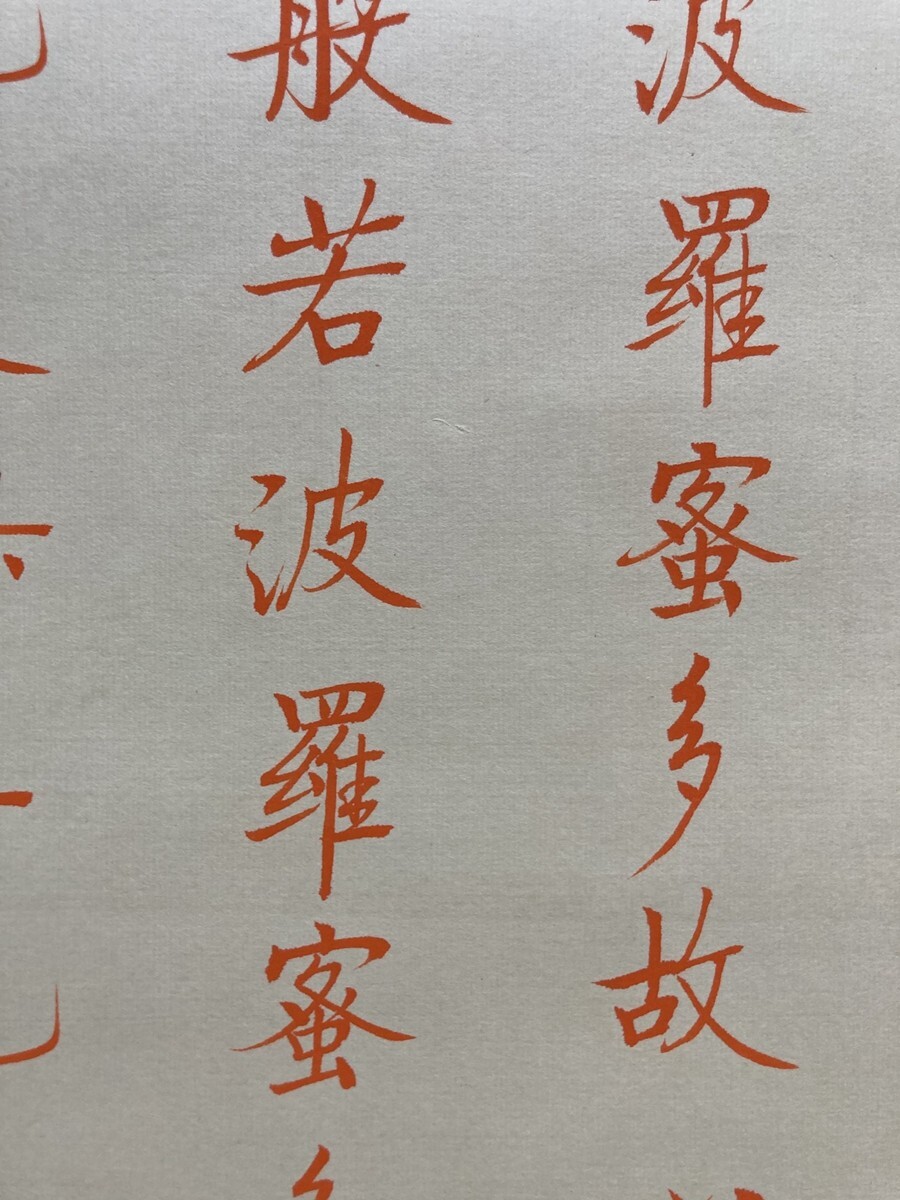 波羅蜜多故
般若波羅蜜